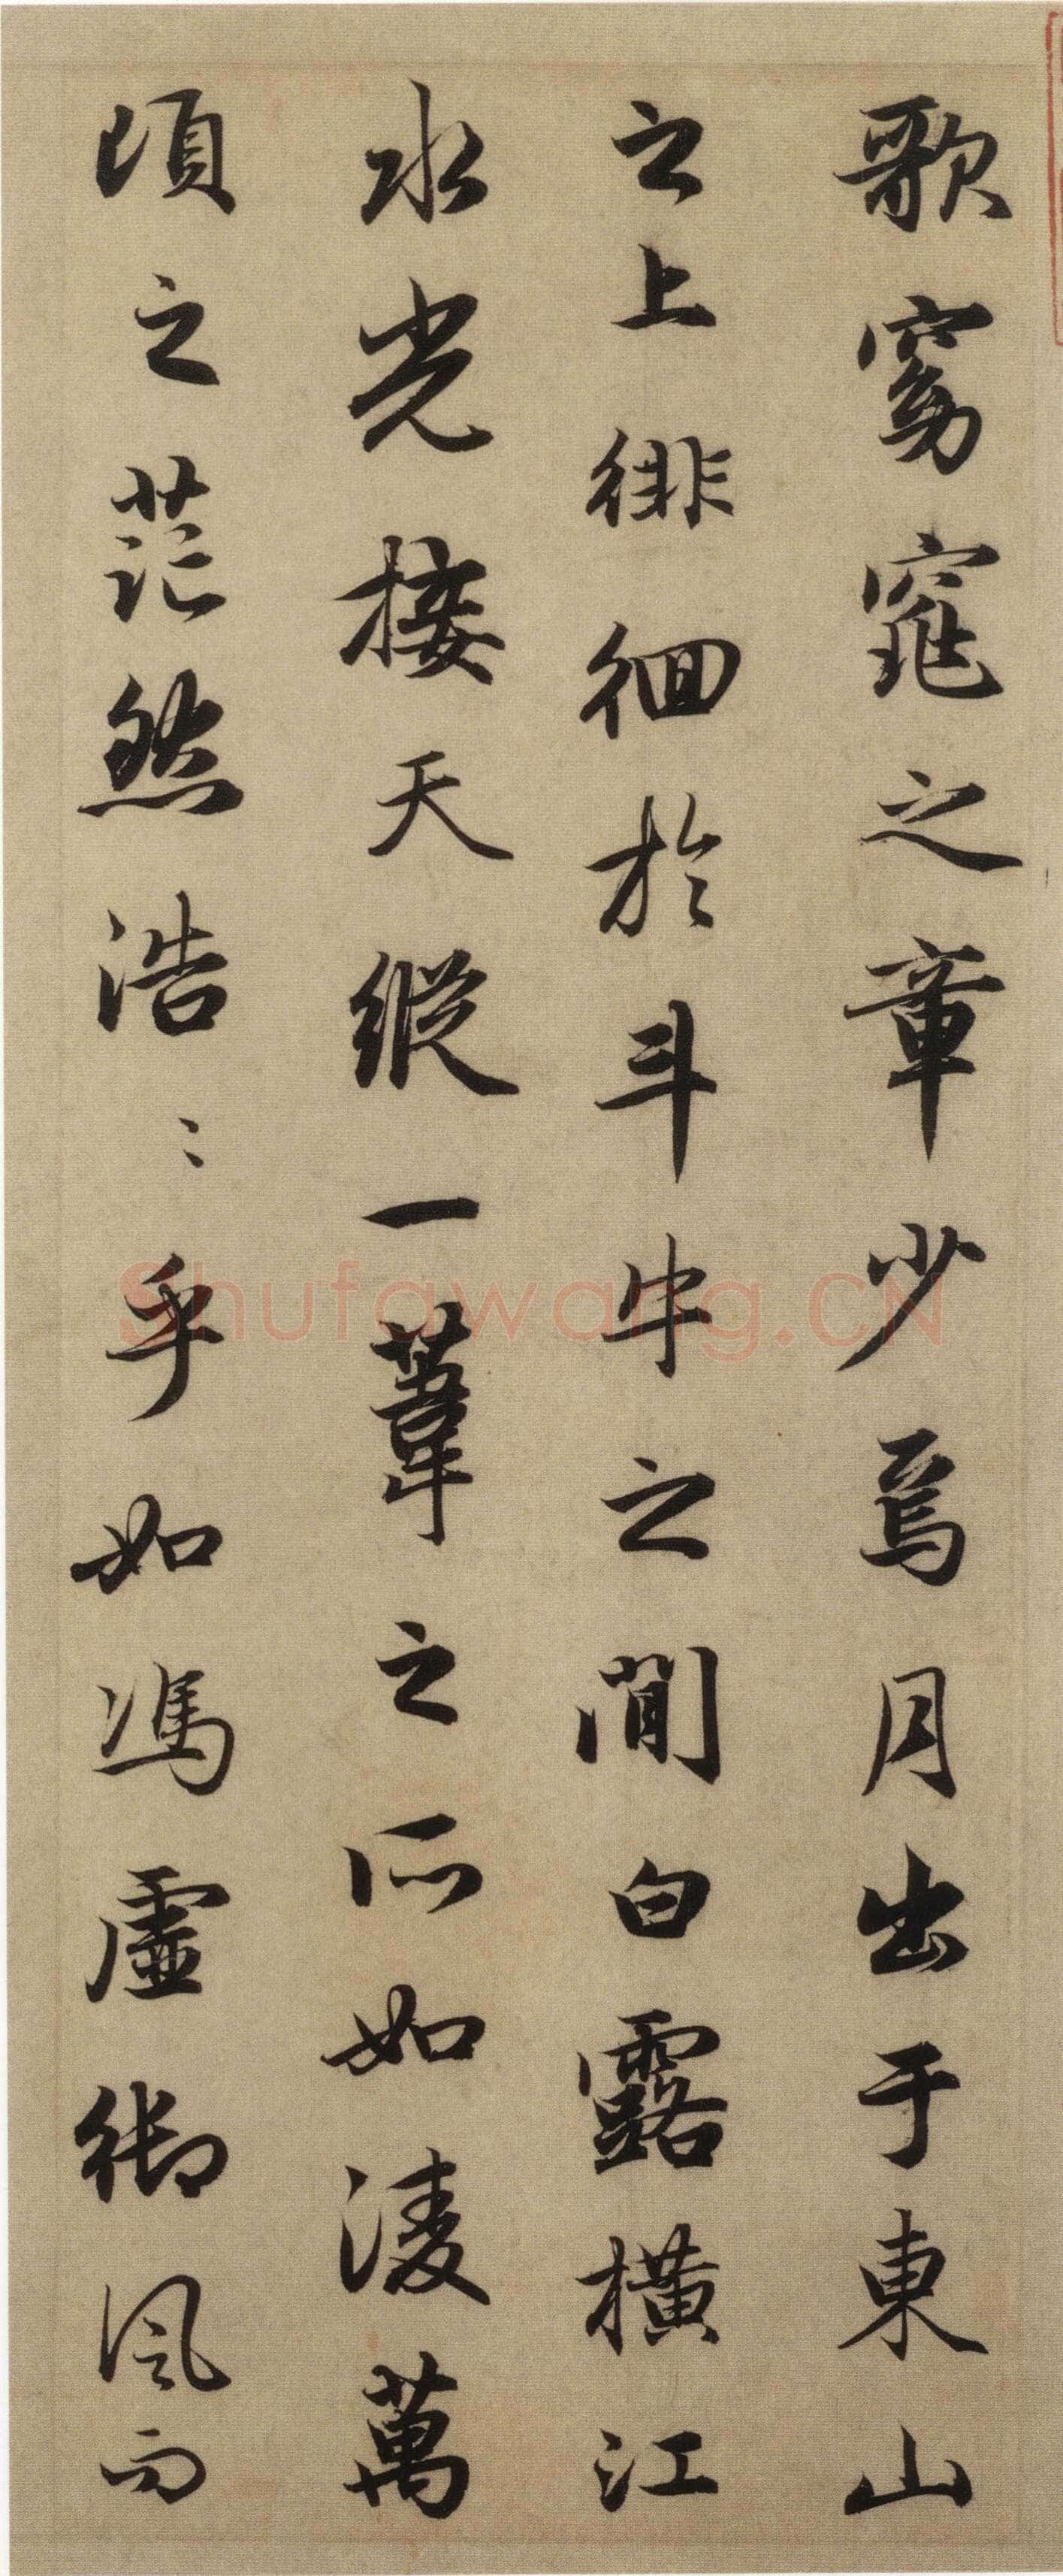 歌窈窕之章少焉月出于東山
之上徘徊於斗牛之間白露橫江
水光接天縱一葦之所如淩萬
頃之茫然浩〻乎如馮虛御風而
Shufawang.CN